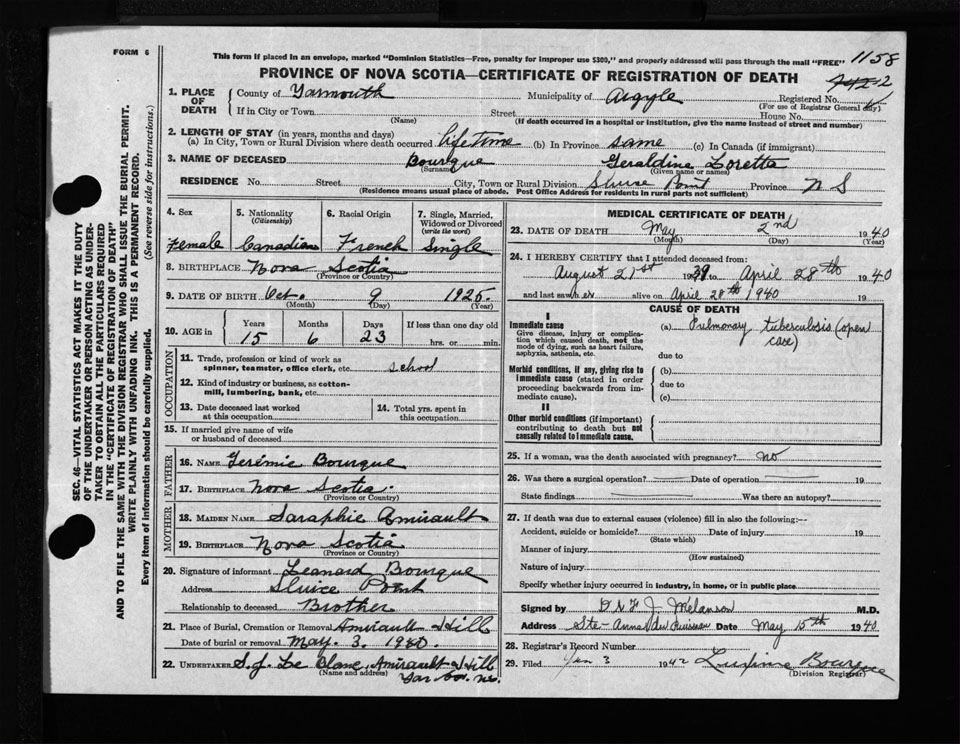 FORM 6
This form if placed in an envelope, marked "Dominion Statistics—Free, penalty for improper use $300," and properly addressed will pass through the mail "FREE"
1158
PROVINCE OF NOVA SCOTIA—CERTIFICATE OF REGISTRATION OF DEATH
1. PLACE OF DEATH
County of Yarmouth Municipality of Argyle Registered No.
(For use of Registrar General only)
If in City or Town Street House No.
(Name) (If death occurred in a hospital or institution, give the name instead of street and number)
2. LENGTH OF STAY (in years, months and days)
(a) In City, Town or Rural Division where death occurred lifetime (b) In Province same (c) In Canada (if immigrant)
3. NAME OF DECEASED Bourque Geraldine Loretta
(Surname) (Given name or names)
RESIDENCE No. Street City, Town or Rural Division Sluice Point Province N S
(Residence means usual place of abode. Post Office Address for residents in rural parts not sufficient)
4. Sex
Female
5. Nationality
(Citizenship)
Canadian
6. Racial Origin
French
7. Single, Married, Widowed or Divorced
(write the word)
Single
8. BIRTHPLACE Nova Scotia
(Province or Country)
9. DATE OF BIRTH Oct. 9 1925.
(Month) (Day) (Year)
10. AGE in
Years Months Days If less than one day old
15 6 23 hrs. or min.
OCCUPATION
11. Trade, profession or kind of work as
spinner, teamster, office clerk, etc. school
12. Kind of industry or business, as cotton-
mill, lumbering, bank, etc.
13. Date deceased last worked
at this occupation
14. Total yrs. spent in
this occupation
15. If married give name of wife
or husband of deceased
FATHER
16. NAME Jerémie Bourque
17. BIRTHPLACE Nova Scotia.
(Province or Country)
MOTHER
18. MAIDEN NAME Saraphie Amirault
19. BIRTHPLACE Nova Scotia
(Province or Country)
20. Signature of informant Leonard Bourque
Address Sluice Point
Relationship to deceased Brother
21. Place of Burial, Cremation or Removal Amirault Hill
Date of burial or removal May. 3. 1940.
22. UNDERTAKER S. J. Le Blanc, Amirault Hill
(Name and address)
Yar. Co. N.S.
MEDICAL CERTIFICATE OF DEATH
23. DATE OF DEATH May 2nd 1940
(Month) (Day) (Year)
24. I HEREBY CERTIFY that I attended deceased from:
August 21st 1939 to April 28th 1940
and last saw her alive on April 28th 1940 19
CAUSE OF DEATH
I
Immediate cause
Give disease, injury or complica-
tion which caused death, not the
mode of dying, such as heart failure,
asphyxia, asthenia, etc.
(a) Pulmonary tuberculosis (open
case)
due to
Morbid conditions, if any, giving rise to
immediate cause (stated in order
proceeding backwards from im-
mediate cause).
(b)
due to
(c)
II
Other morbid conditions (if important)
contributing to death but not
causally related to immediate cause.
25. If a woman, was the death associated with pregnancy? no
26. Was there a surgical operation? Date of operation 19
State findings Was there an autopsy?
27. If death was due to external causes (violence) fill in also the following:—
Accident, suicide or homicide? Date of injury 19
(State which)
Manner of injury
(How sustained)
Nature of injury
Specify whether injury occurred in industry, in home, or in public place
Signed by J. Melanson M.D.
Address Ste-Anne du Ruisseau Date May 15th 1940
28. Registrar's Record Number
29. Filed Jan 3 1942 Bourque
(Division Registrar)
SEC. 46—VITAL STATISTICS ACT MAKES IT THE DUTY
OF THE UNDERTAKER OR PERSON ACTING AS UNDER-
TAKER TO OBTAIN ALL THE PARTICULARS REQUIRED
IN THE "CERTIFICATE OF REGISTRATION OF DEATH"
AND TO FILE THE SAME WITH THE DIVISION REGISTRAR WHO SHALL ISSUE THE BURIAL PERMIT.
WRITE PLAINLY WITH UNFADING INK. THIS IS A PERMANENT RECORD.
Every item of information should be carefully supplied. (See reverse side for instructions.)